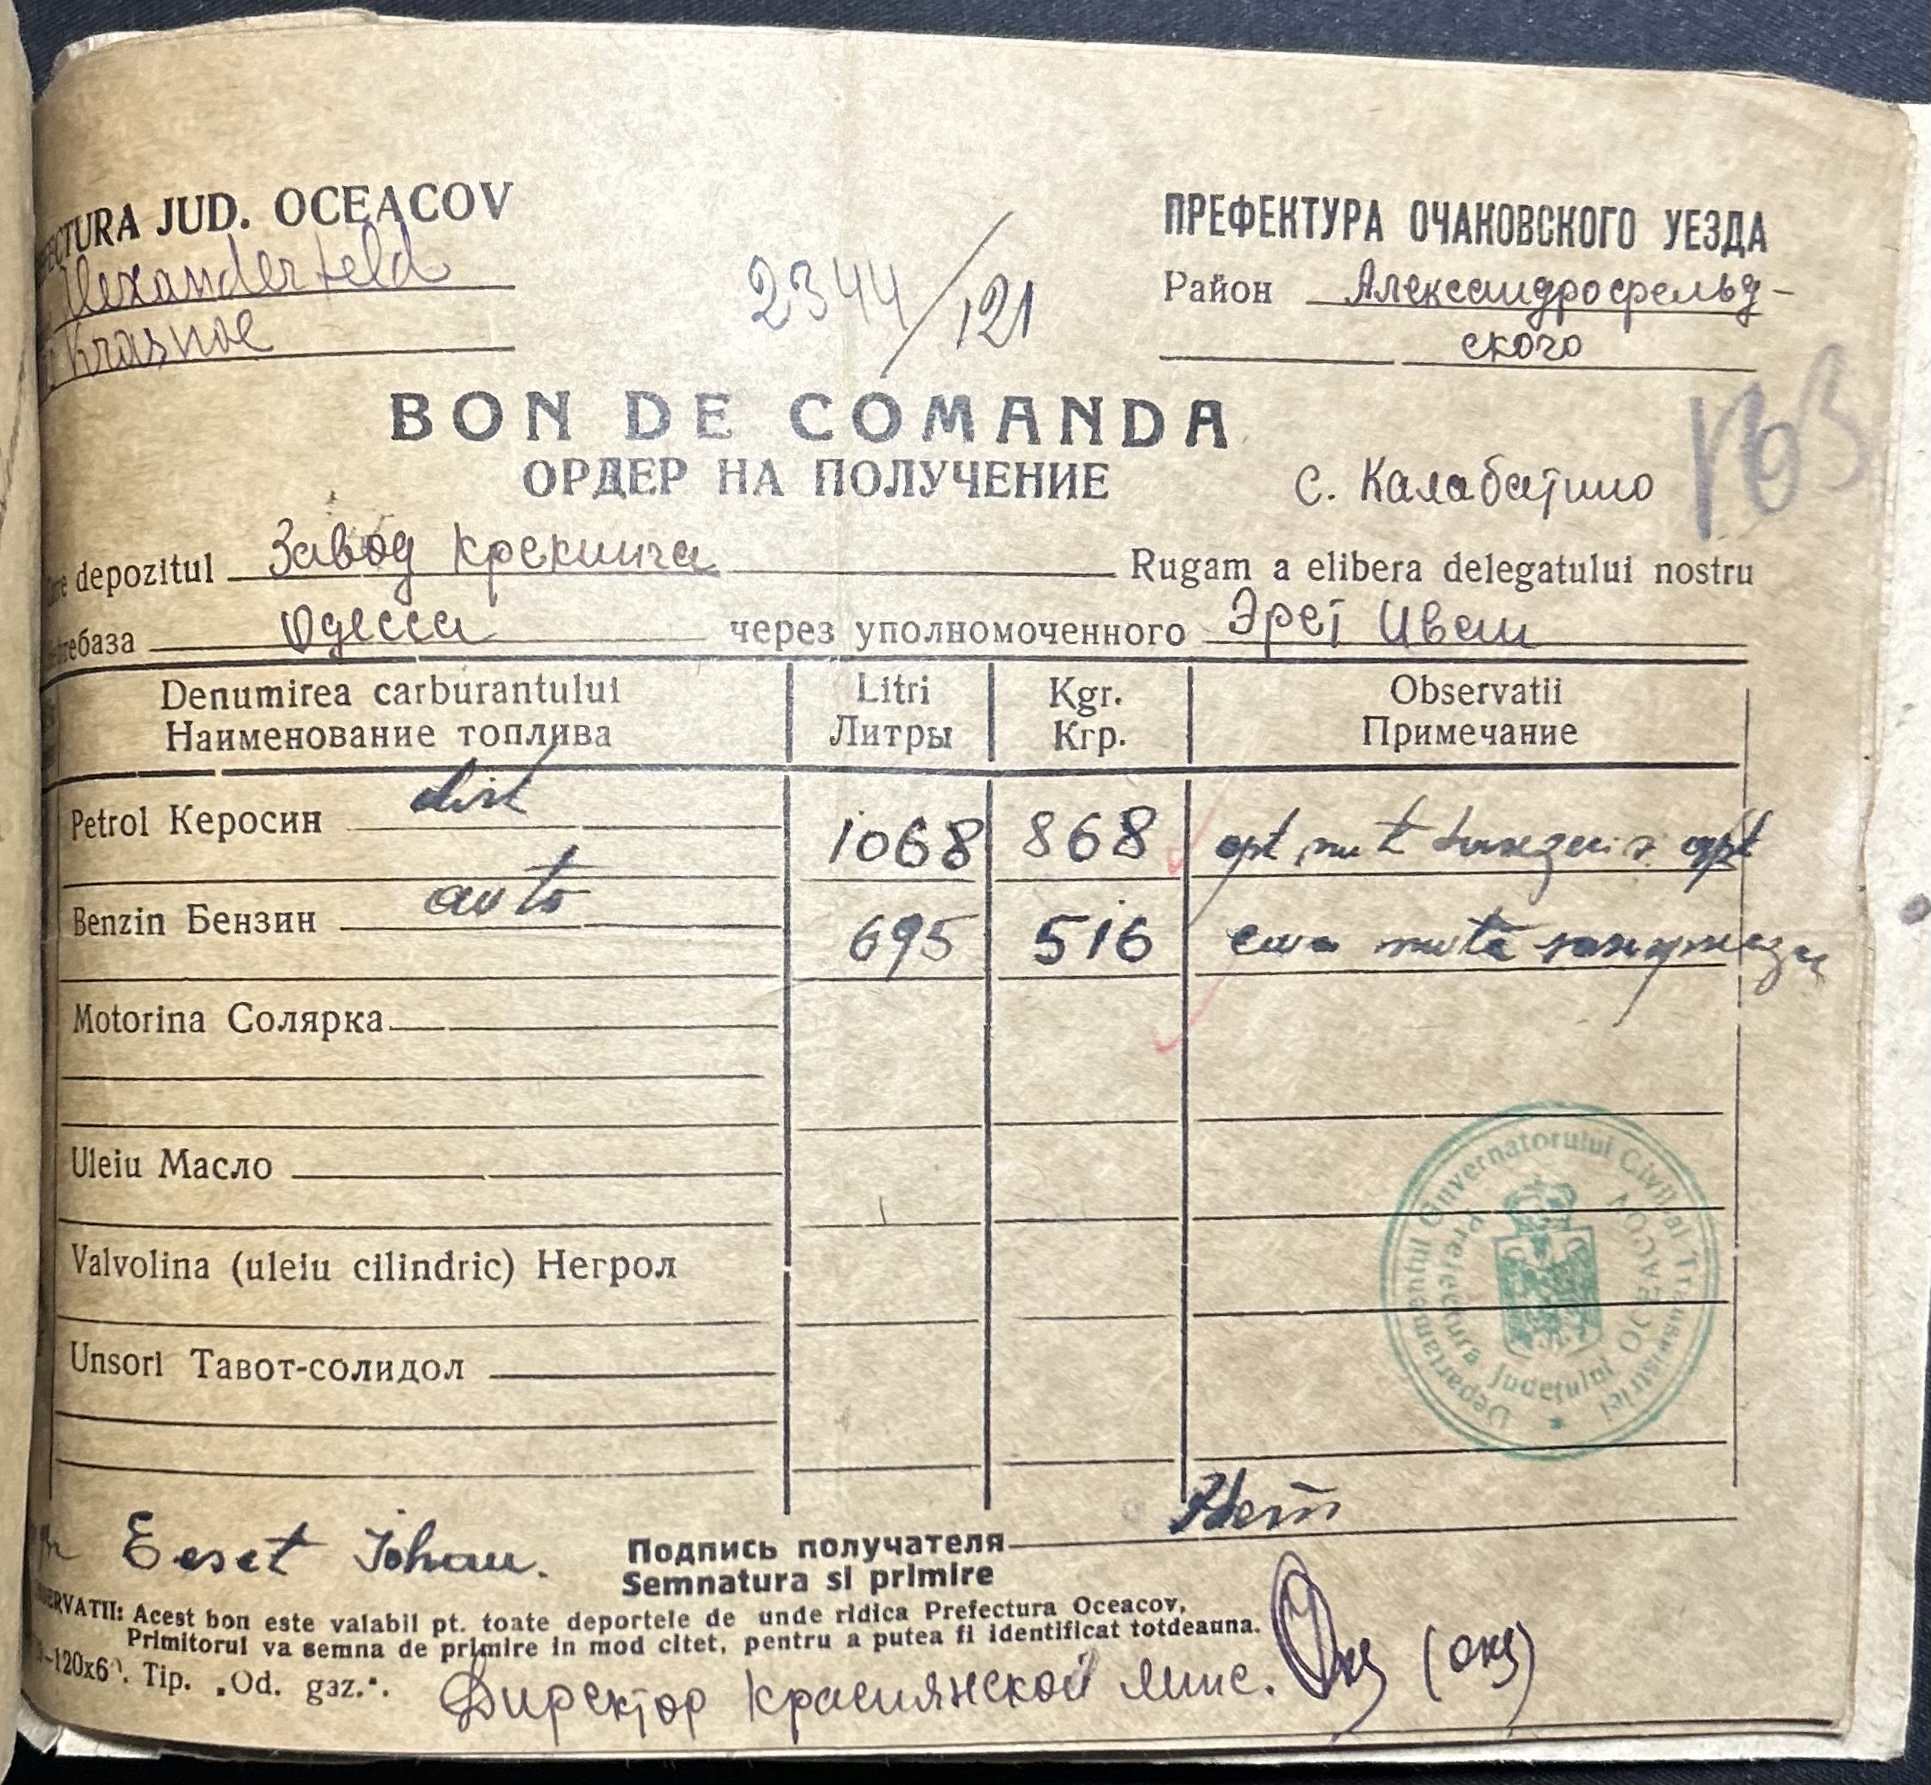 ECTURA JUD. OCEACOV
Alexanderfeld
Krasnoe
2344/121
ПРЕФЕКТУРА ОЧАКОВСКОГО УЕЗДА
Район Александрофельд-
ского
BON DE COMANDA
ОРДЕР НА ПОЛУЧЕНИЕ
с. Калабатино
depozitul Завод Крекинга Rugam a elibera delegatului nostru
Одесса через уполномоченного Эрет Иван
Denumirea carburantului Litri Kgr. Observatii
Наименование топлива Литры Кгр. Примечание
Petrol Керосин dist 1068 868 opt sute opt
Benzin Бензин auto 695 516
Motorina Солярка
Uleiu Масло
Valvolina (uleiu cilindric) Негрол
Unsori Тавот-солидол
Departamentul Guvernatorului Civil al Transnistriei
Prefectura Județului OCEACOV
Johan.
Подпись получателя
Semnatura si primire
ERVATII: Acest bon este valabil pt. toate deportele de unde ridica Prefectura Oceacov,
Primitorul va semna de primire in mod citet, pentru a putea fi identificat totdeauna.
-120x60. Tip. „Od. gaz.".
Директор Краснянской